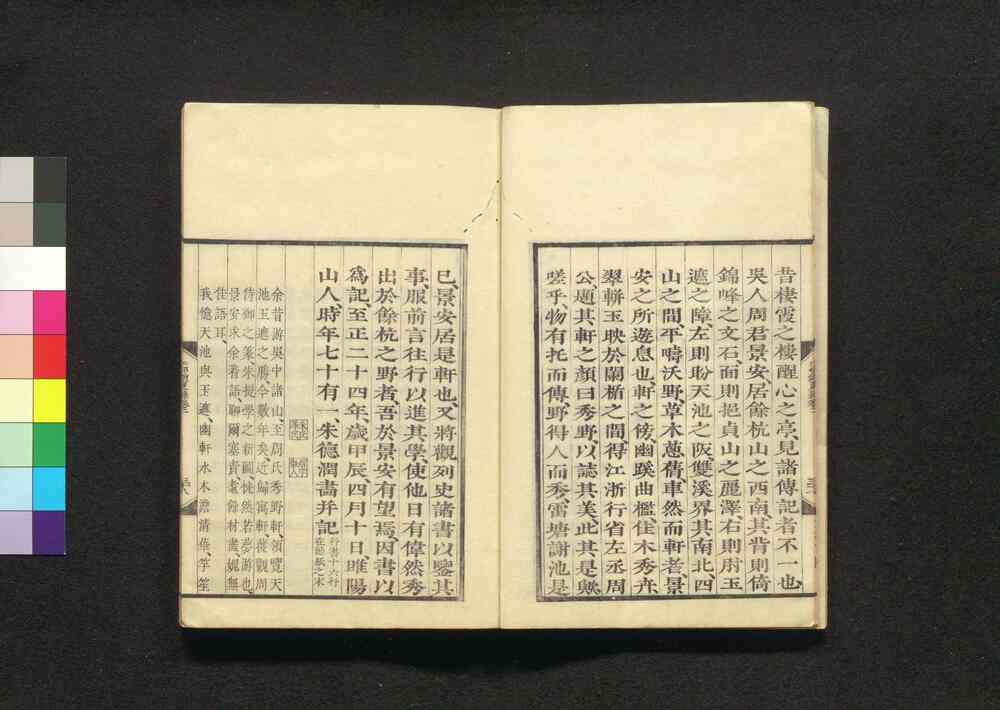 昔棲霞之樓、醒心之亭、見諸傳記者不一也
吳人周君景安居餘杭山之西南、其背則倚
錦峰之文石、面則挹貞山之麗澤、右則肘玉
遮之障、左則盼天池之阪、雙溪界其南北、四
山之間、平疇沃野、草木蔥蒨、車然而軒者、景
安之所遊息也、軒之傍、幽蹊曲檻、佳木秀卉
翠軿玉映於闌楯之間、得江浙行省左丞周
公、題其軒之顏曰秀野、以誌其美、此其是歟
嗟乎、物有托而傳、野得人而秀、雷塘謝池是
已、景安居是軒也、又將觀列史諸書、以鑒其
事、服前言往行、以進其學、使他日有偉然秀
出於餘杭之野者、吾於景安有望焉、因書以
爲記、至正二十四年、歲甲辰、四月十日、睢陽
山人、時年七十有一、朱德潤畵并記
行書十八行
在節紙之末
余昔游吳中諸山、至周氏秀野軒、領覽天
池玉遮之勝、今數年矣、近歸寓軒、復觀周
待御之篆、朱提學之新圖、恍然若夢游也、
景安求余着語、聊爾塞責、耄餘材盡、媿無
佳語耳、
我憶天池與玉遮、幽軒水木澹清華、竽笙